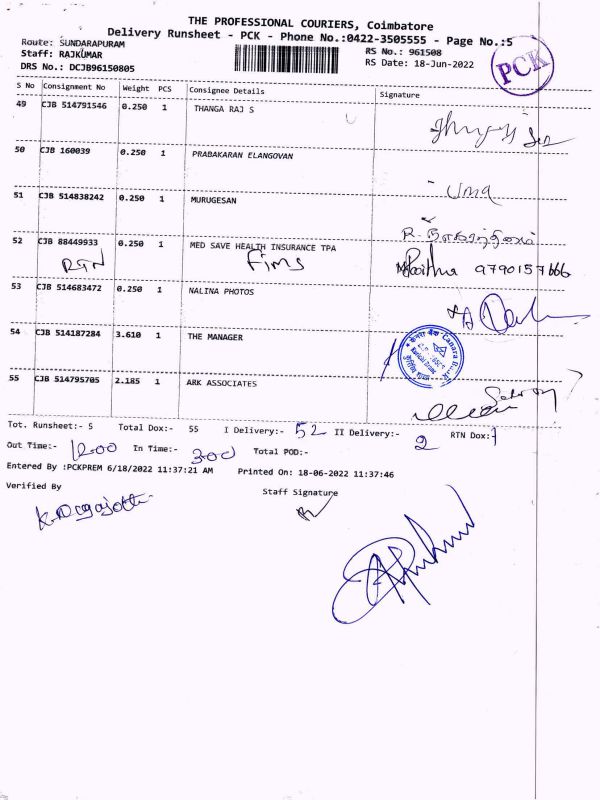 THE PROFESSIONAL COURIERS, Coimbatore
Delivery Runsheet - PCK - Phone No.:0422-3505555 - Page No.:5
Route: SUNDARAPURAM
Staff: RAJKUMAR
DRS No.: DCJB96150805
RS No.: 961508
RS Date: 18-Jun-2022
PCK
S No Consignment No Weight PCS Consignee Details Signature
49 CJB 514791546 0.250 1 THANGA RAJ S
50 CJB 160039 0.250 1 PRABAKARAN ELANGOVAN
51 CJB 514838242 0.250 1 MURUGESAN Uma
52 CJB 88449933 0.250 1 MED SAVE HEALTH INSURANCE TPA
RTN Fims 9790157666
53 CJB 514683472 0.250 1 NALINA PHOTOS
54 CJB 514187284 3.610 1 THE MANAGER
Canara Bank
55 CJB 514795705 2.185 1 ARK ASSOCIATES
Tot. Runsheet:- 5 Total Dox:- 55 I Delivery:- 52 II Delivery:- 2 RTN Dox:1
Out Time:- 1200 In Time:- 300 Total POD:-
Entered By :PCKPREM 6/18/2022 11:37:21 AM Printed On: 18-06-2022 11:37:46
Verified By Staff Signature